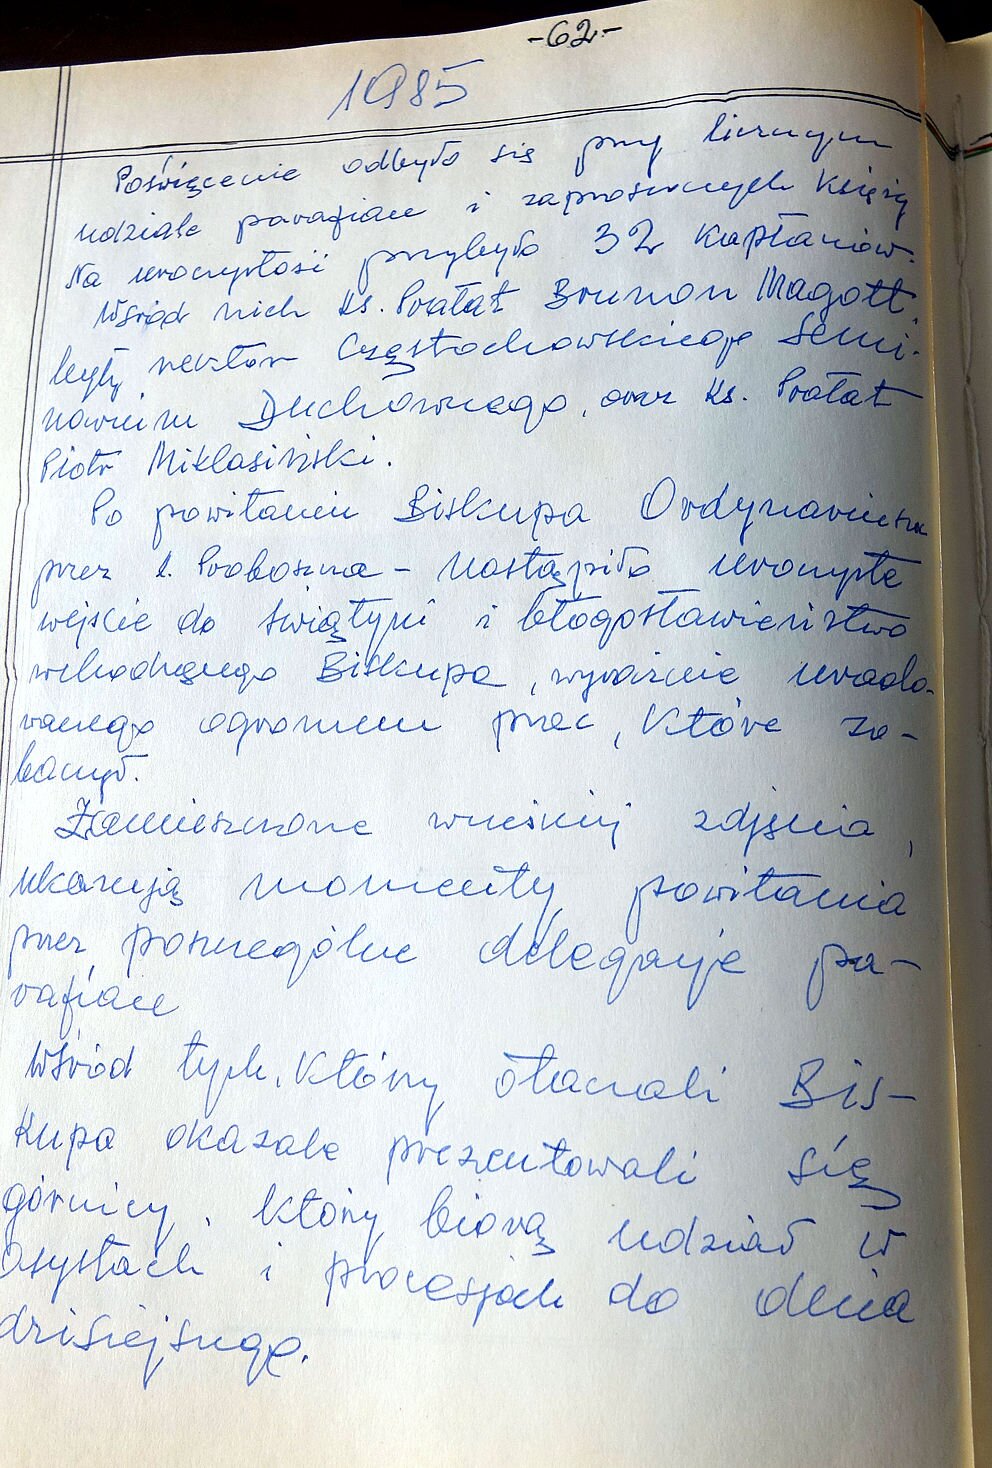 -62-
1985
Poświęcenie odbyło się przy licznym
udziale parafian i zaproszonych Księży
Na uroczystość przybyło 32 Kapłanów.
Wśród nich Ks. Prałat Brunon Magott,
były rektor Częstochowskiego Semi-
narium Duchownego, oraz Ks. Prałat
Piotr Miklasiński.
Po powitaniu Biskupa Ordynariusza
przez k. Proboszcza - nastąpiło uroczyste
wejście do świątyni i błogosławieństwo
wchodzącego Biskupa, wyraźnie urado-
wanego ogromem prac, które zo-
baczył.
Zamieszczone wcześniej zdjęcia,
ukazują momenty powitania
przez poszczególne delegacje pa-
rafian
Wśród tych, którzy otaczali Bis-
kupa okazale prezentowali się
górnicy, którzy biorą udział w
asystach i procesjach do dnia
dzisiejszego.